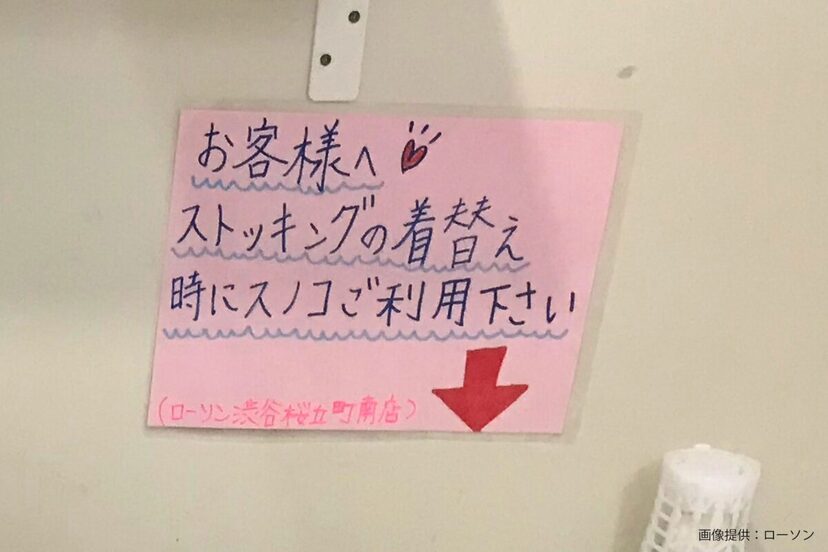 お客様へ
ストッキングの着替え
時にスノコご利用下さい
(ローソン渋谷桜丘町南店)
画像提供:ローソン